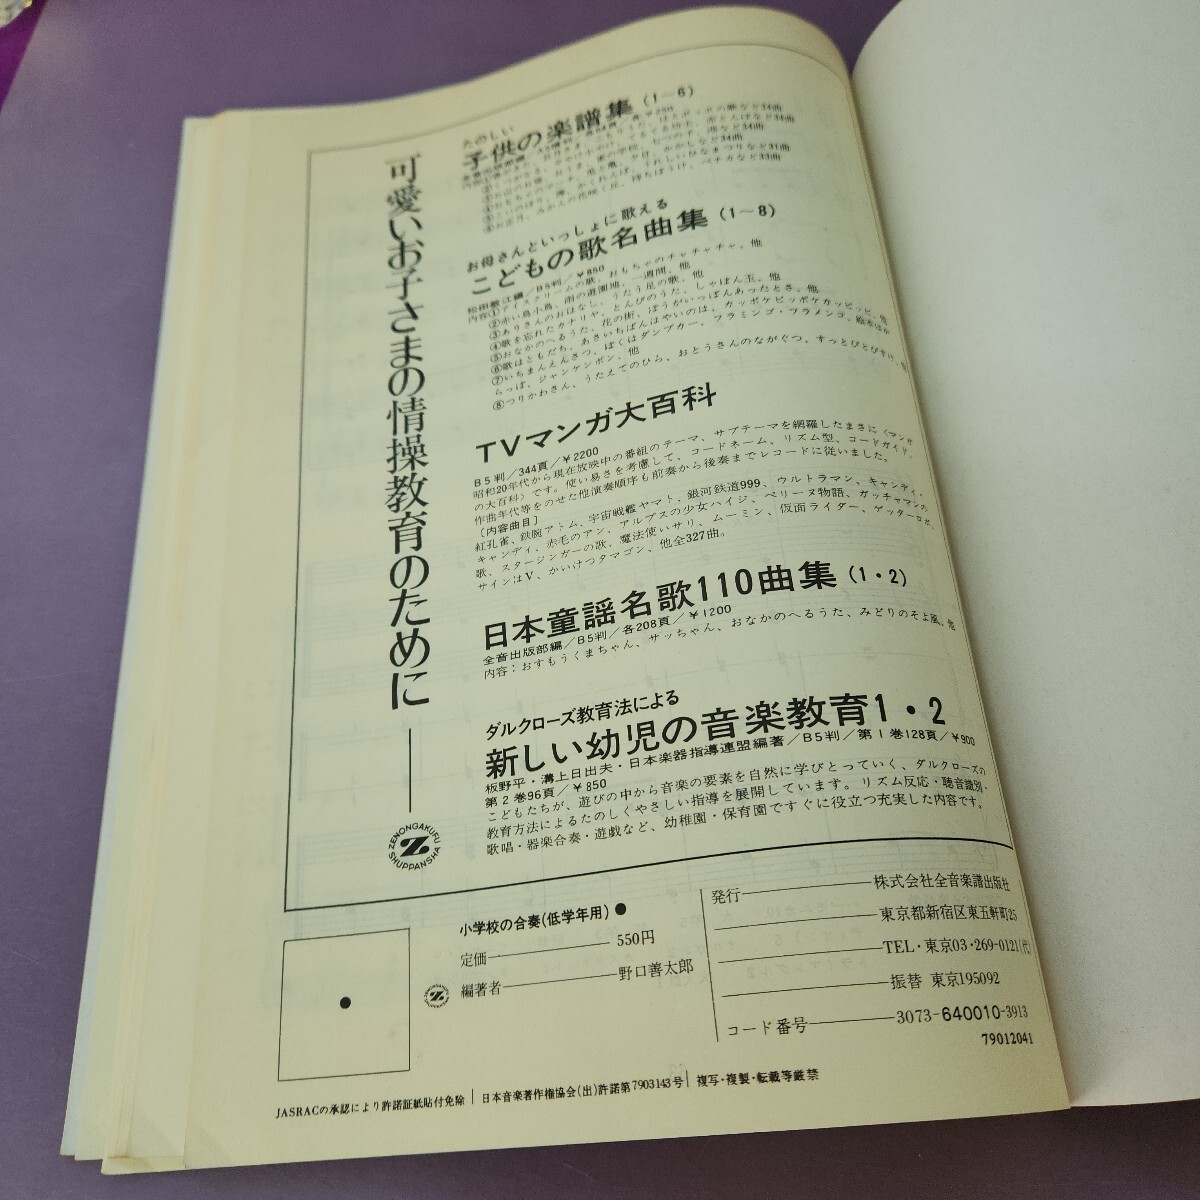 可愛いお子さまの情操教育のために
たのしい
子供の楽譜集(1―6)
お母さんといっしょに歌える
こどもの歌名曲集(1―8)
松田敏江編/B5判/¥850
内容①アイスクリームの歌、おもちゃのチャチャチャ、他
②赤い鳥小鳥、雨の遊園地、一週間、他
③ありさんのおはなし、うたう足の歌、他
④歌を忘れたカナリヤ、とんびのうた、しゃぼん玉、他
⑤おなかのへるうた、花の街、ぼうがいっぽんあったとさ、他
⑥歌はともだち、あさいちばんはやいのは、カッポケピッポケカッピッピ、他
⑦いちまんえんさつ、ぼくはダンプカー、フラミンゴ・フラメンコ、絵本ほか
らっぱ、ジャンケンポン、他
⑧つりかわさん、うたえてのひら、おとうさんのながぐつ、すっとびとびすけ、他
TVマンガ大百科
B5判/344頁/¥2200
昭和20年代から現在放映中の番組のテーマ、サブテーマを網羅したまさに〈マンガ
の大百科〉です。使い易さを考慮して、コードネーム、リズム型、コードガイド、
作曲年代等をのせた他演奏順序も前奏から後奏までレコードに従いました。
[内容曲目]
紅孔雀、鉄腕アトム、宇宙戦艦ヤマト、銀河鉄道999、ウルトラマン、キャンディ・
キャンディ、赤毛のアン、アルプスの少女ハイジ、ペリーヌ物語、ガッチャマンの
歌、スタージンガーの歌、魔法使いサリ、ムーミン、仮面ライダー、ゲッターロボ、
サインはV、かいけつタマゴン、他全327曲。
日本童謡名歌110曲集(1・2)
全音出版部編/B5判/各208頁/¥1200
内容:おすもうくまちゃん、サッちゃん、おなかのへるうた、みどりのそよ風、他
ダルクローズ教育法による
新しい幼児の音楽教育1・2
板野平・溝上日出夫・日本楽器指導連盟編著/B5判/第1巻128頁/¥900
第2巻96頁/¥850
こどもたちが、遊びの中から音楽の要素を自然に学びとっていく、ダルクローズの
教育方法によるたのしくやさしい指導を展開しています。リズム反応・聴音識別・
歌唱・器楽合奏・遊戯など、幼稚園・保育園ですぐに役立つ充実した内容です。
ZENONGAKUFU
SHUPPANSHA
小学校の合奏(低学年用)●
定価――550円
編著者――野口善太郎
発行――株式会社全音楽譜出版社
――東京都新宿区東五軒町25
――TEL・東京03・269-0121(代)
――振替 東京195092
コード番号――3073-640010-3913
79012041
JASRACの承認により許諾証紙貼付免除|日本音楽著作権協会(出)許諾第7903143号|複写・複製・転載等厳禁